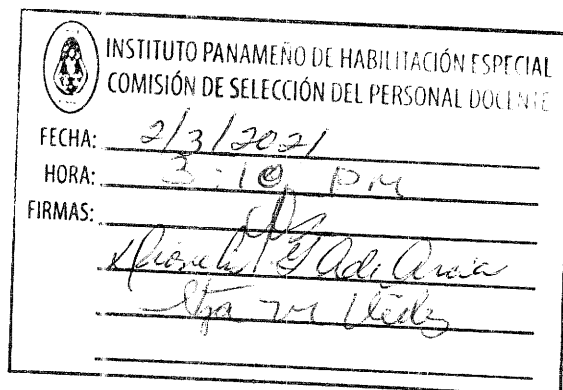 INSTITUTO PANAMEÑO DE HABILITACIÓN ESPECIAL
COMISIÓN DE SELECCIÓN DEL PERSONAL DOCENTE
FECHA: 2/3/2021
HORA: 3:10 PM
FIRMAS: